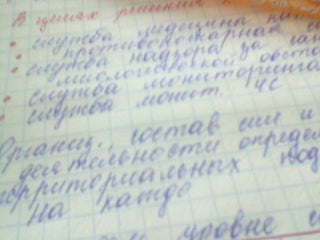 В целях решения
• служба медицины
противопожарная
• служба надзора за
• служба мониторинга
• служба монит. ЧС
Органиц. состав сил и
деятельности определ
территориальных под
На каждо
уровне